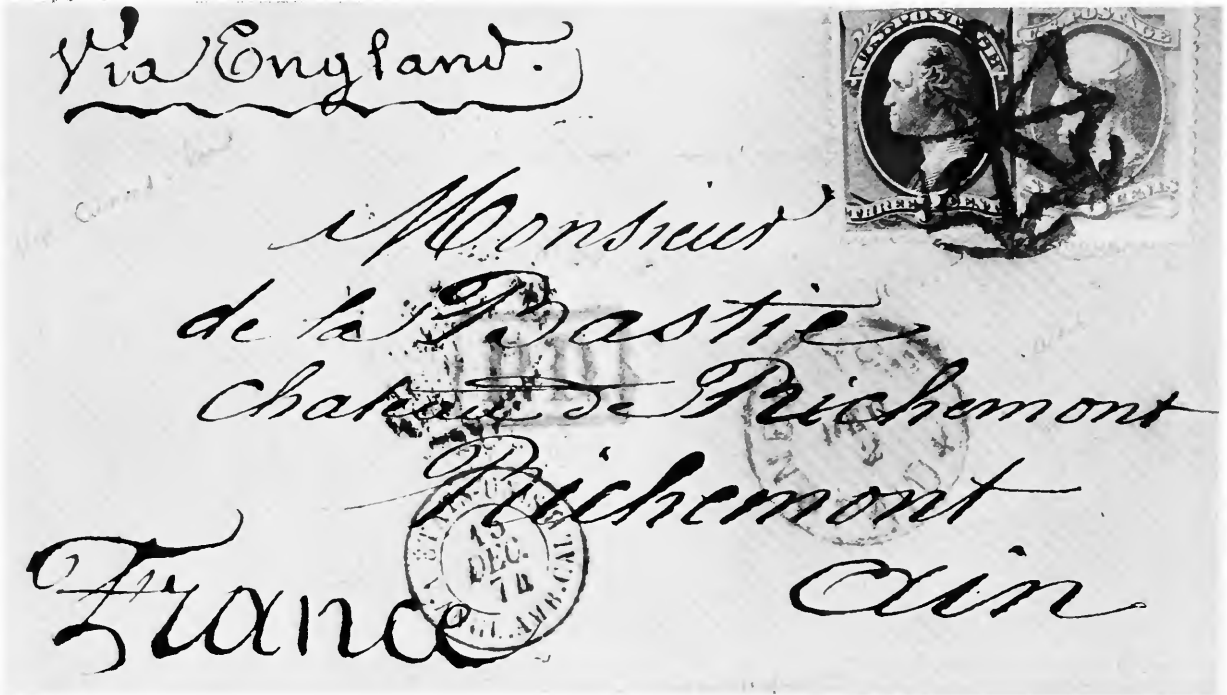 Via England.
U.S. POSTAGE
THREE CENTS
POSTAGE
CENTS
Monsieur
de la Bastie
chateau de Richemont
Richemont
Ain
France
15
DEC.
74